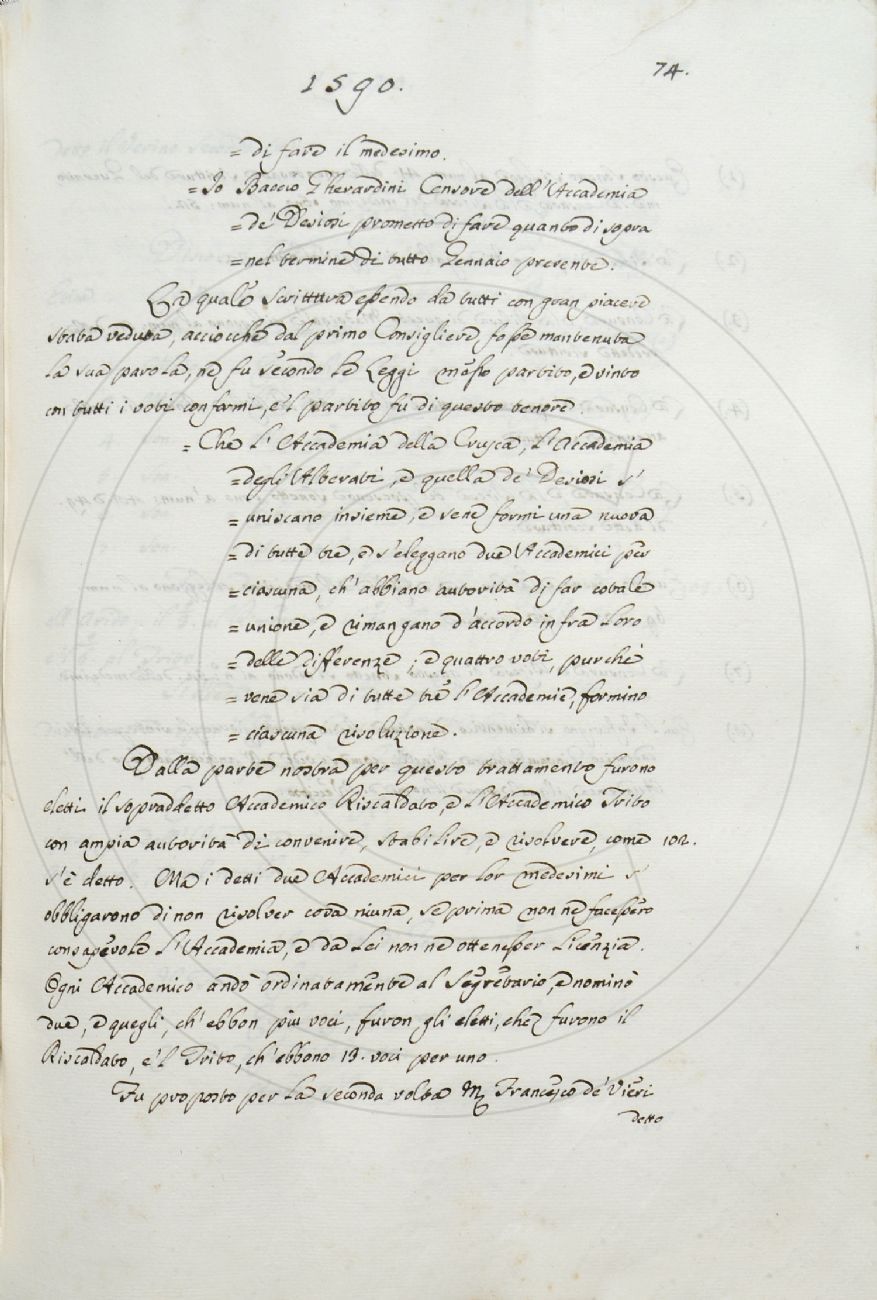 1590.
74.
= di fare il medesimo.
= Io Baccio Gherardini Censore dell'Accademia
= de' Desiosi prometto di fare quanto di sopra
= nel termine di tutto Gennaio presente.
La quale scrittura essendo da tutti con gran piacere
stata veduta, acciocchè dal primo Consigliere fosse mantenuta
la sua parola, ne fu secondo le Leggi messo partito, e vinto
con tutti i voti conformi, e 'l partito fù di questo tenore.
= Che l'Accademia della Crusca, l'Accademia
= degli Alterati, e quella de' Desiosi s'
= uniscano insieme, e sene formi una nuova
= di tutte tre, e s'eleggano due Accademici per
= ciascuna, ch'abbiano autorità di far cotale
= unione, e rimangano d'accordo infra loro
= delle differenze; e quattro voti, purchè
= vene sia di tutte tre l'Accademie, formino
= ciascuna risoluzione.
Dalla parte nostra per questo trattamento furono
eletti il sopraddetto Accademico Riscaldato, e l'Accademico Trito
con ampia autorità di convenire, stabilire, e risolvere, come 102.
s'è detto. Ma i detti due Accademici per lor medesimi s'
obbligarono di non risolver cosa niuna, se prima non ne facessero
consapevole l'Accademia, e da lei non ne ottenesser licenzia.
Ogni Accademico andò ordinatamente al Segretario, e nominò
due, e quegli, ch'ebbon più voci, furon gli eletti, che furono il
Riscaldato, e 'l Trito, ch'ebbono 19. voci per uno.
Fu proposto per la seconda volta M. Francesco de' Vieri
detto